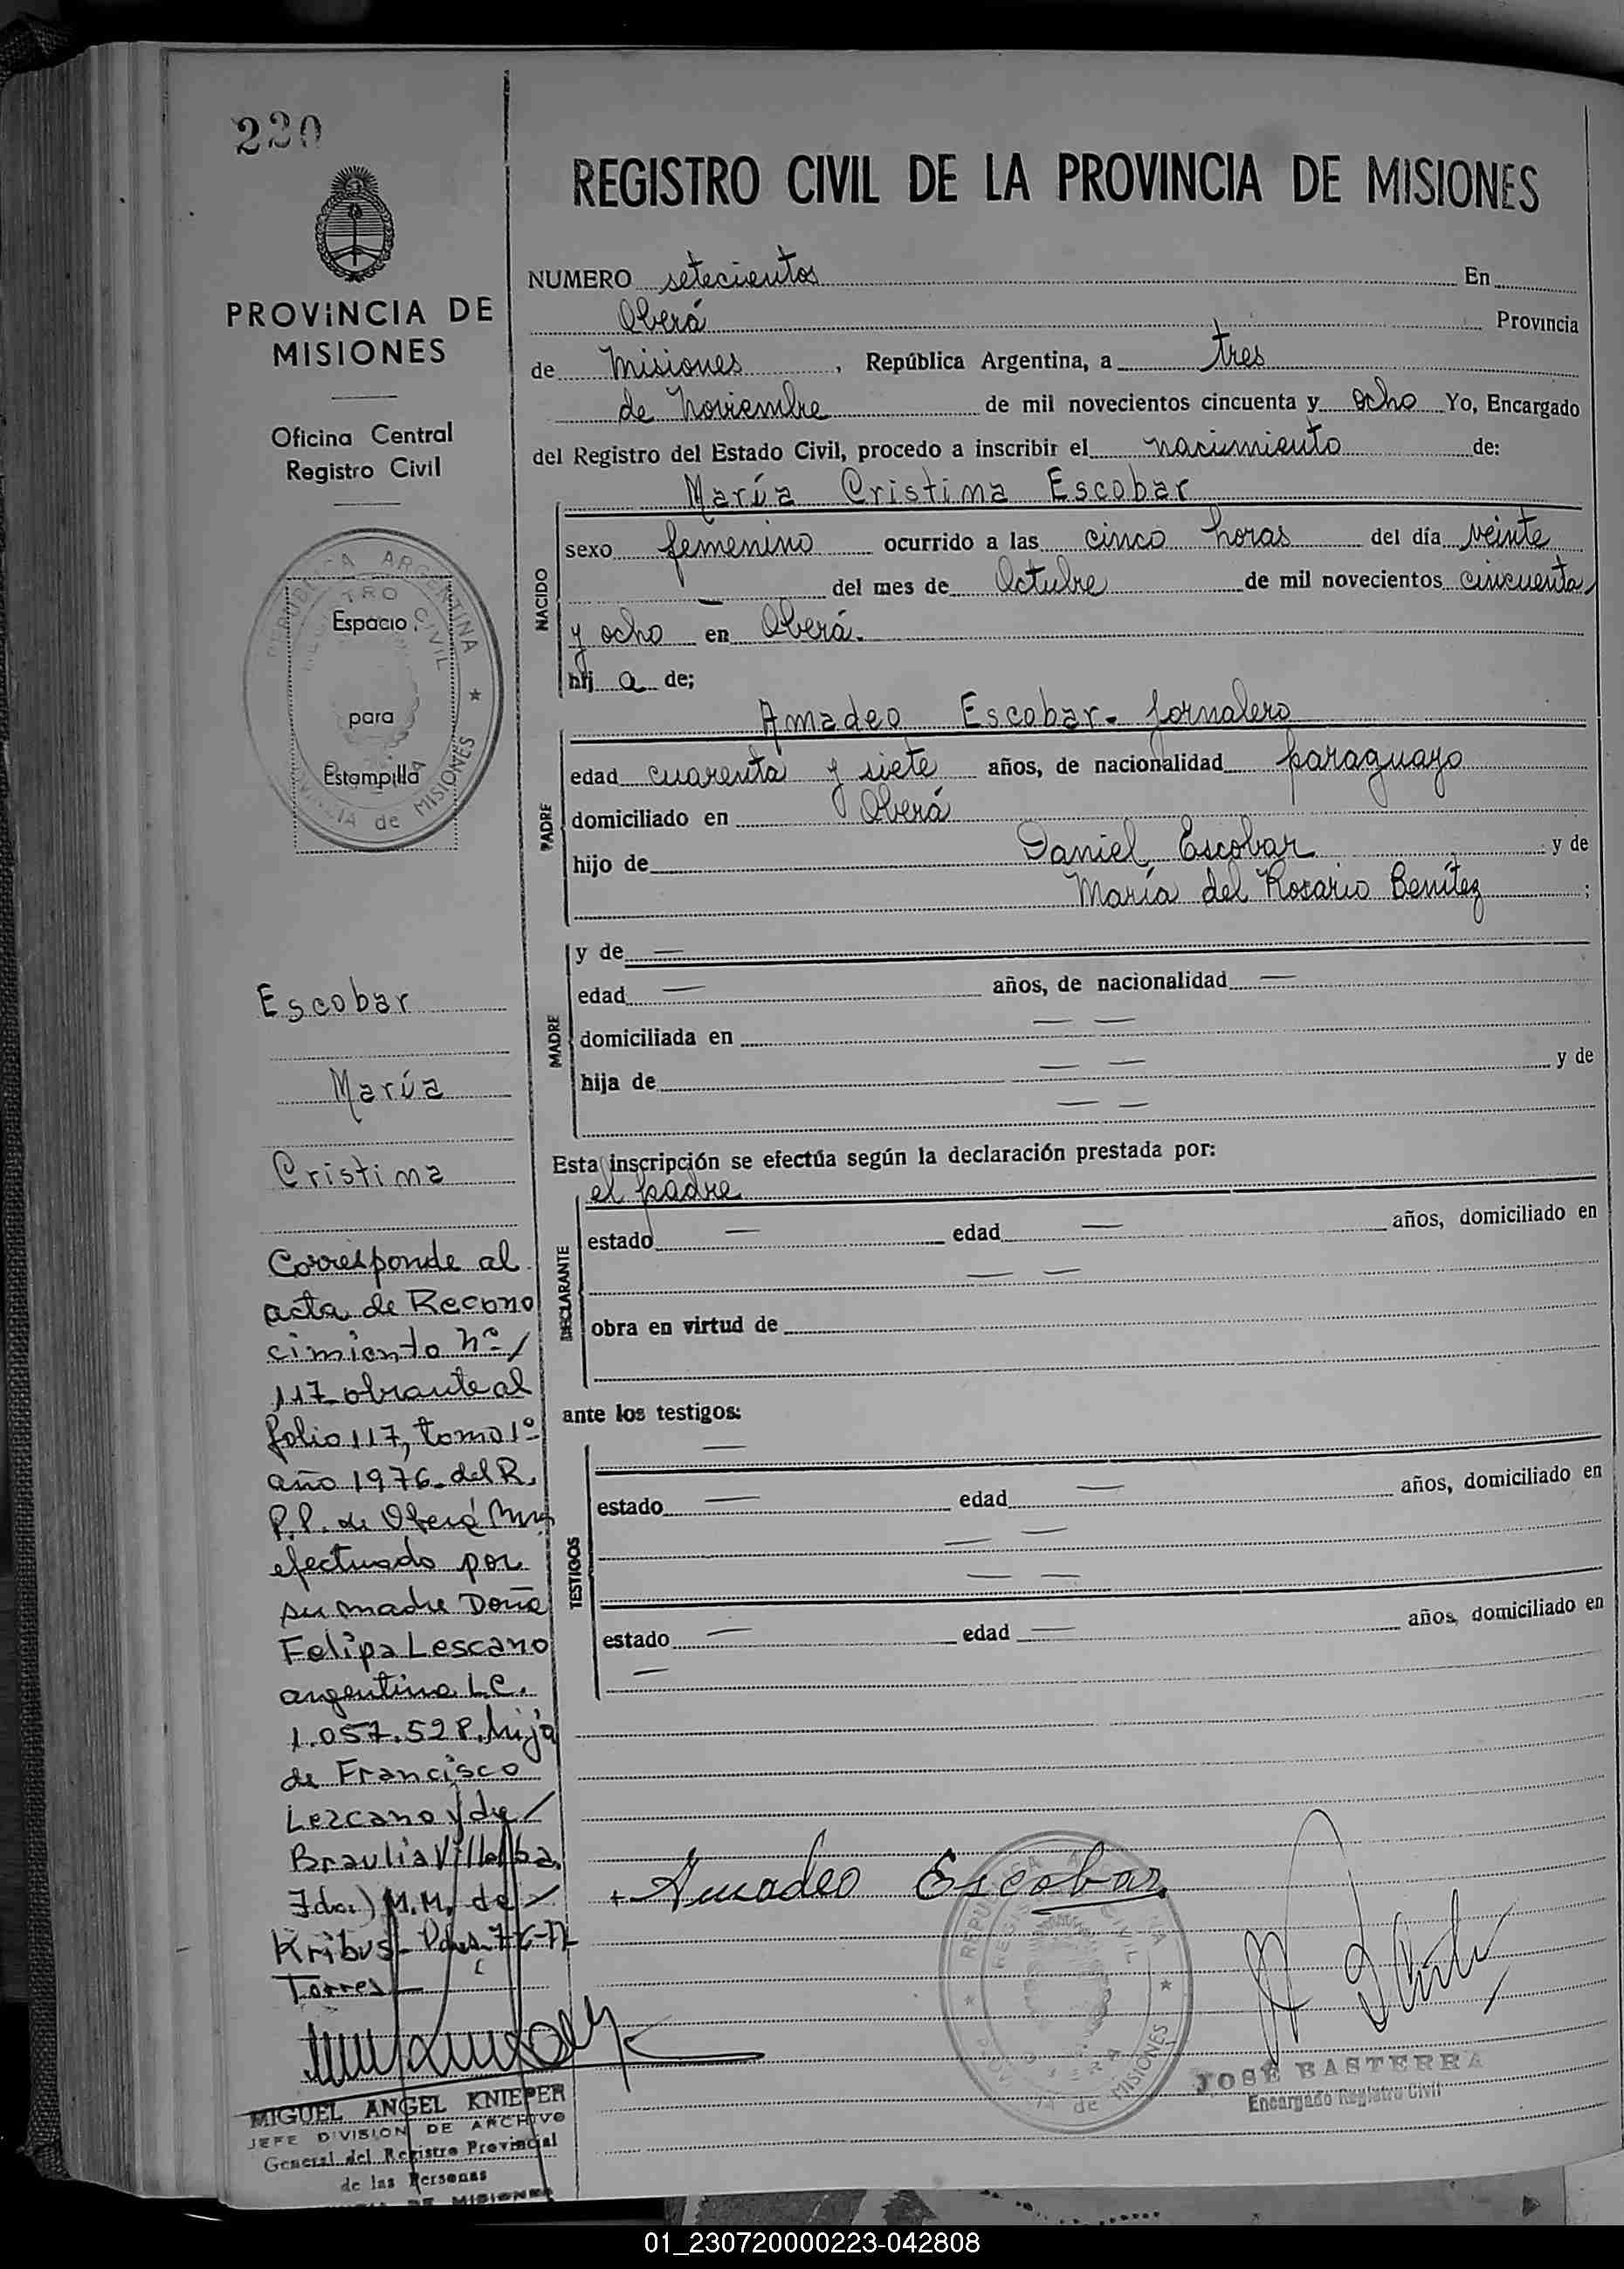 220
REGISTRO CIVIL DE LA PROVINCIA DE MISIONES
PROVINCIA DE
MISIONES
Oficina Central
Registro Civil
REPUBLICA ARGENTINA
REGISTRO CIVIL
PROVINCIA de MISIONES
Espacio
para
Estampilla
NUMERO setecientos En
Oberá Provincia
de Misiones, República Argentina, a tres
de Noviembre de mil novecientos cincuenta y ocho Yo, Encargado
del Registro del Estado Civil, procedo a inscribir el nacimiento de:
María Cristina Escobar
NACIDO
sexo femenino ocurrido a las cinco horas del día veinte
— del mes de Octubre de mil novecientos cincuenta
y ocho en Oberá.
hij a de;
Amadeo Escobar - Jornalero
PADRE
edad cuarenta y siete años, de nacionalidad paraguayo
domiciliado en Oberá
hijo de Daniel Escobar y de
María del Rosario Benítez ;
MADRE
y de —
edad — años, de nacionalidad —
domiciliada en — —
hija de — — y de
— —
Esta inscripción se efectúa según la declaración prestada por:
el padre
DECLARANTE
estado — edad — años, domiciliado en
— —
obra en virtud de
ante los testigos:
—
TESTIGOS
estado — edad — años, domiciliado en
— —
— —
estado — edad — años, domiciliado en
—
Escobar
María
Cristina
Corresponde al
acta de Recono
cimiento nº /
117 obrante al
folio 117, tomo 1º
año 1976 del R.
P.P. de Oberá Mnes
efectuado por
su madre Doña
Felipa Lescano
argentina L.C.
1.057.528, hija
de Francisco
Lezcano y de /
Braulia Villalba.
Fdo.) M.M. de /
Kribus -
Torres
MIGUEL ANGEL KNIEPER
JEFE DIVISION DE ARCHIVO
General del Registro Provincial
de las Personas
DE MISIONES
Amadeo Escobar
REPUBLICA
REGISTRO CIVIL
de MISIONES
JOSÉ BASTERRA
Encargado Registro Civil
01_230720000223-042808